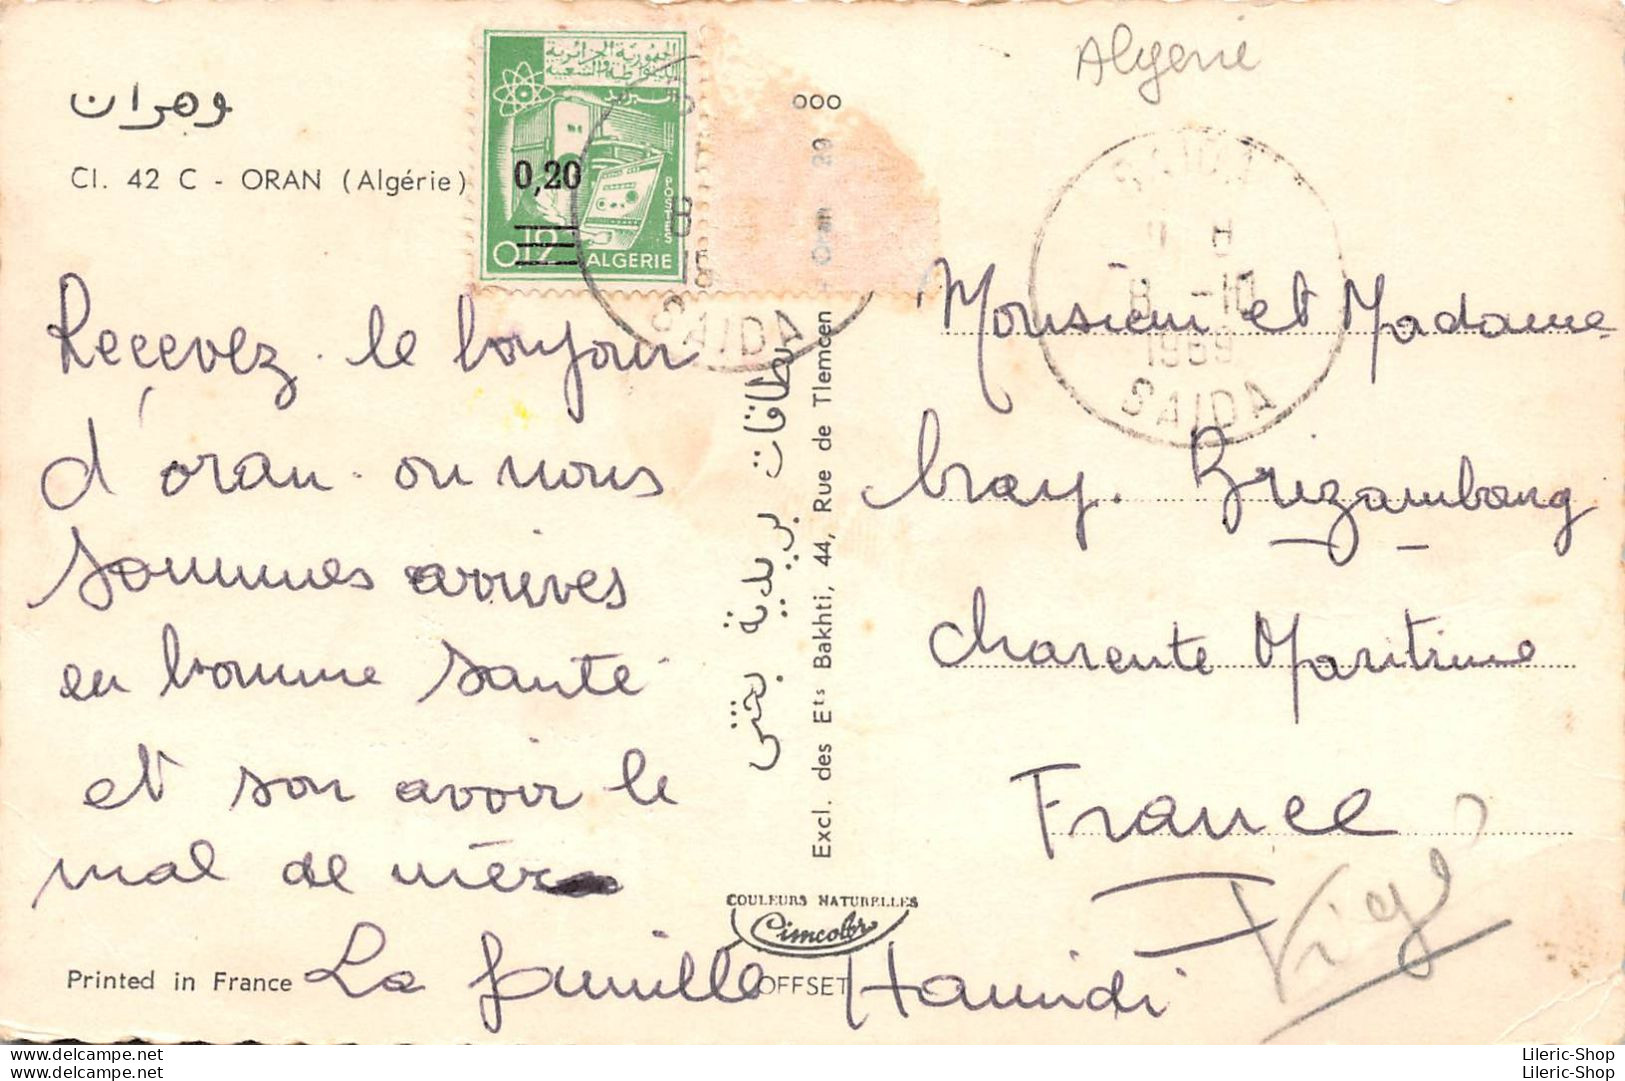 وهران
Cl. 42 C - ORAN (Algérie)
الجمهورية الجزائرية
الديمقراطية الشعبية
البريد
0,20
POSTES
0,12
ALGERIE
SAIDA
Algerie
SAIDA
8 -10
1969
SAIDA
Recevez le bonjour
d'oran ou nous
sommes arrives
en bonne santé
et son avoir le
mal de mére
La famille Hamidi
بطاقات بريدية بختي
Excl. des Ets Bakhti, 44, Rue de Tlemcen - Oran
COULEURS NATURELLES
Cimcolor
OFFSET
Printed in France
Monsieur et Madame
bray. Brizambourg
charente Maritime
France
delcampe.net Lileric-Shop
delcampe.net Lileric-Shop